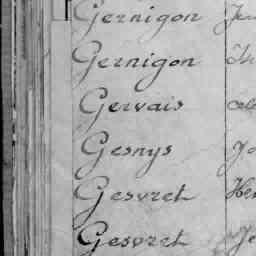 Gernigon
Gernigon
Gervais
Gesnys
Gesvret
Gesvret